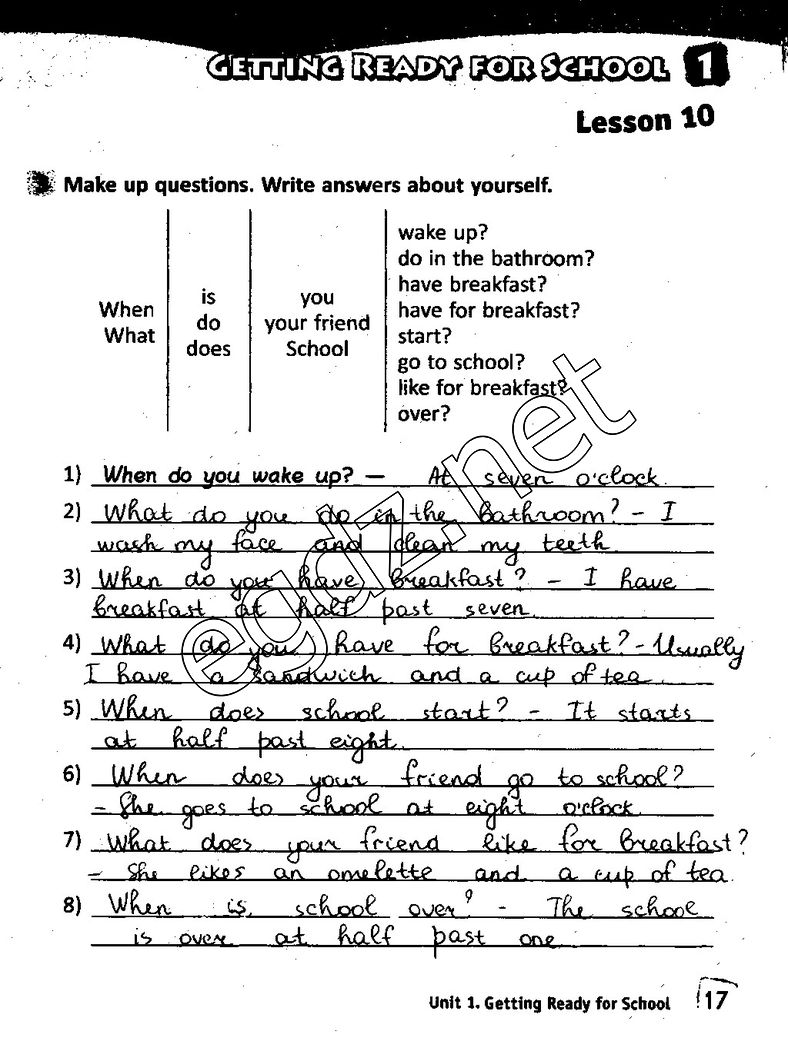 GETTING READY FOR SCHOOL 1
Lesson 10
Make up questions. Write answers about yourself.
When
What
is
do
does
you
your friend
School
wake up?
do in the bathroom?
have breakfast?
have for breakfast?
start?
go to school?
like for breakfast?
over?
egdz.net
1) When do you wake up? — At seven o'clock
2) What do you do in the bathroom? - I
wash my face and clean my teeth
3) When do you have breakfast? - I have
breakfast at half past seven
4) What do you have for breakfast? - Usually
I have a sandwich and a cup of tea
5) When does school start? - It starts
at half past eight.
6) When does your friend go to school?
- She goes to school at eight o'clock
7) What does your friend like for breakfast?
- She likes an omelette and a cup of tea
8) When is school over? - The school
is over at half past one
Unit 1. Getting Ready for School 17